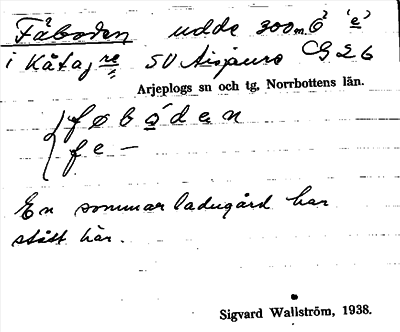 Fäboden udde 300 m Ö ('e')
i Kåtaj re SV Aispuro G 26
Arjeplogs sn och tg, Norrbottens län.
føbo´dɛn
fe –
En sommarladugård har
stått här.
Sigvard Wallström, 1938.